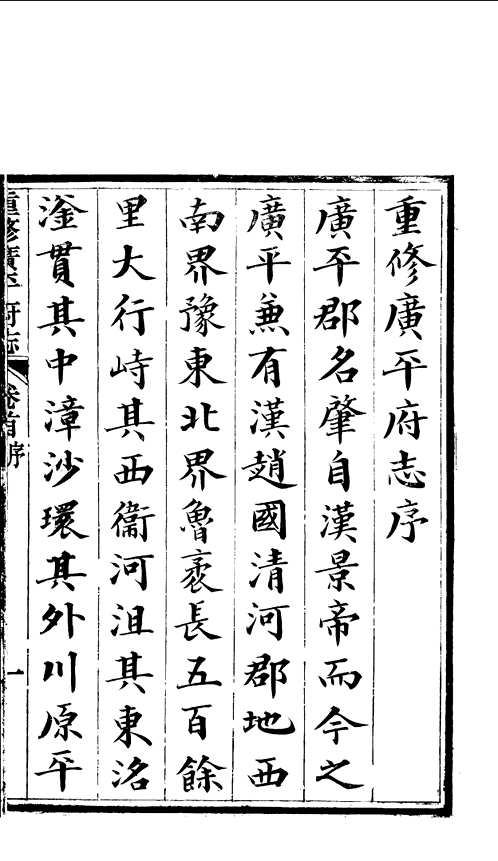 重修廣平府志序
廣平郡名肇自漢景帝而今之
廣平兼有漢趙國清河郡地西
南界豫東北界魯袤長五百餘
里大行峙其西衞河沮其東洺
滏貫其中漳沙環其外川原平
重修廣平府志 卷首序 一